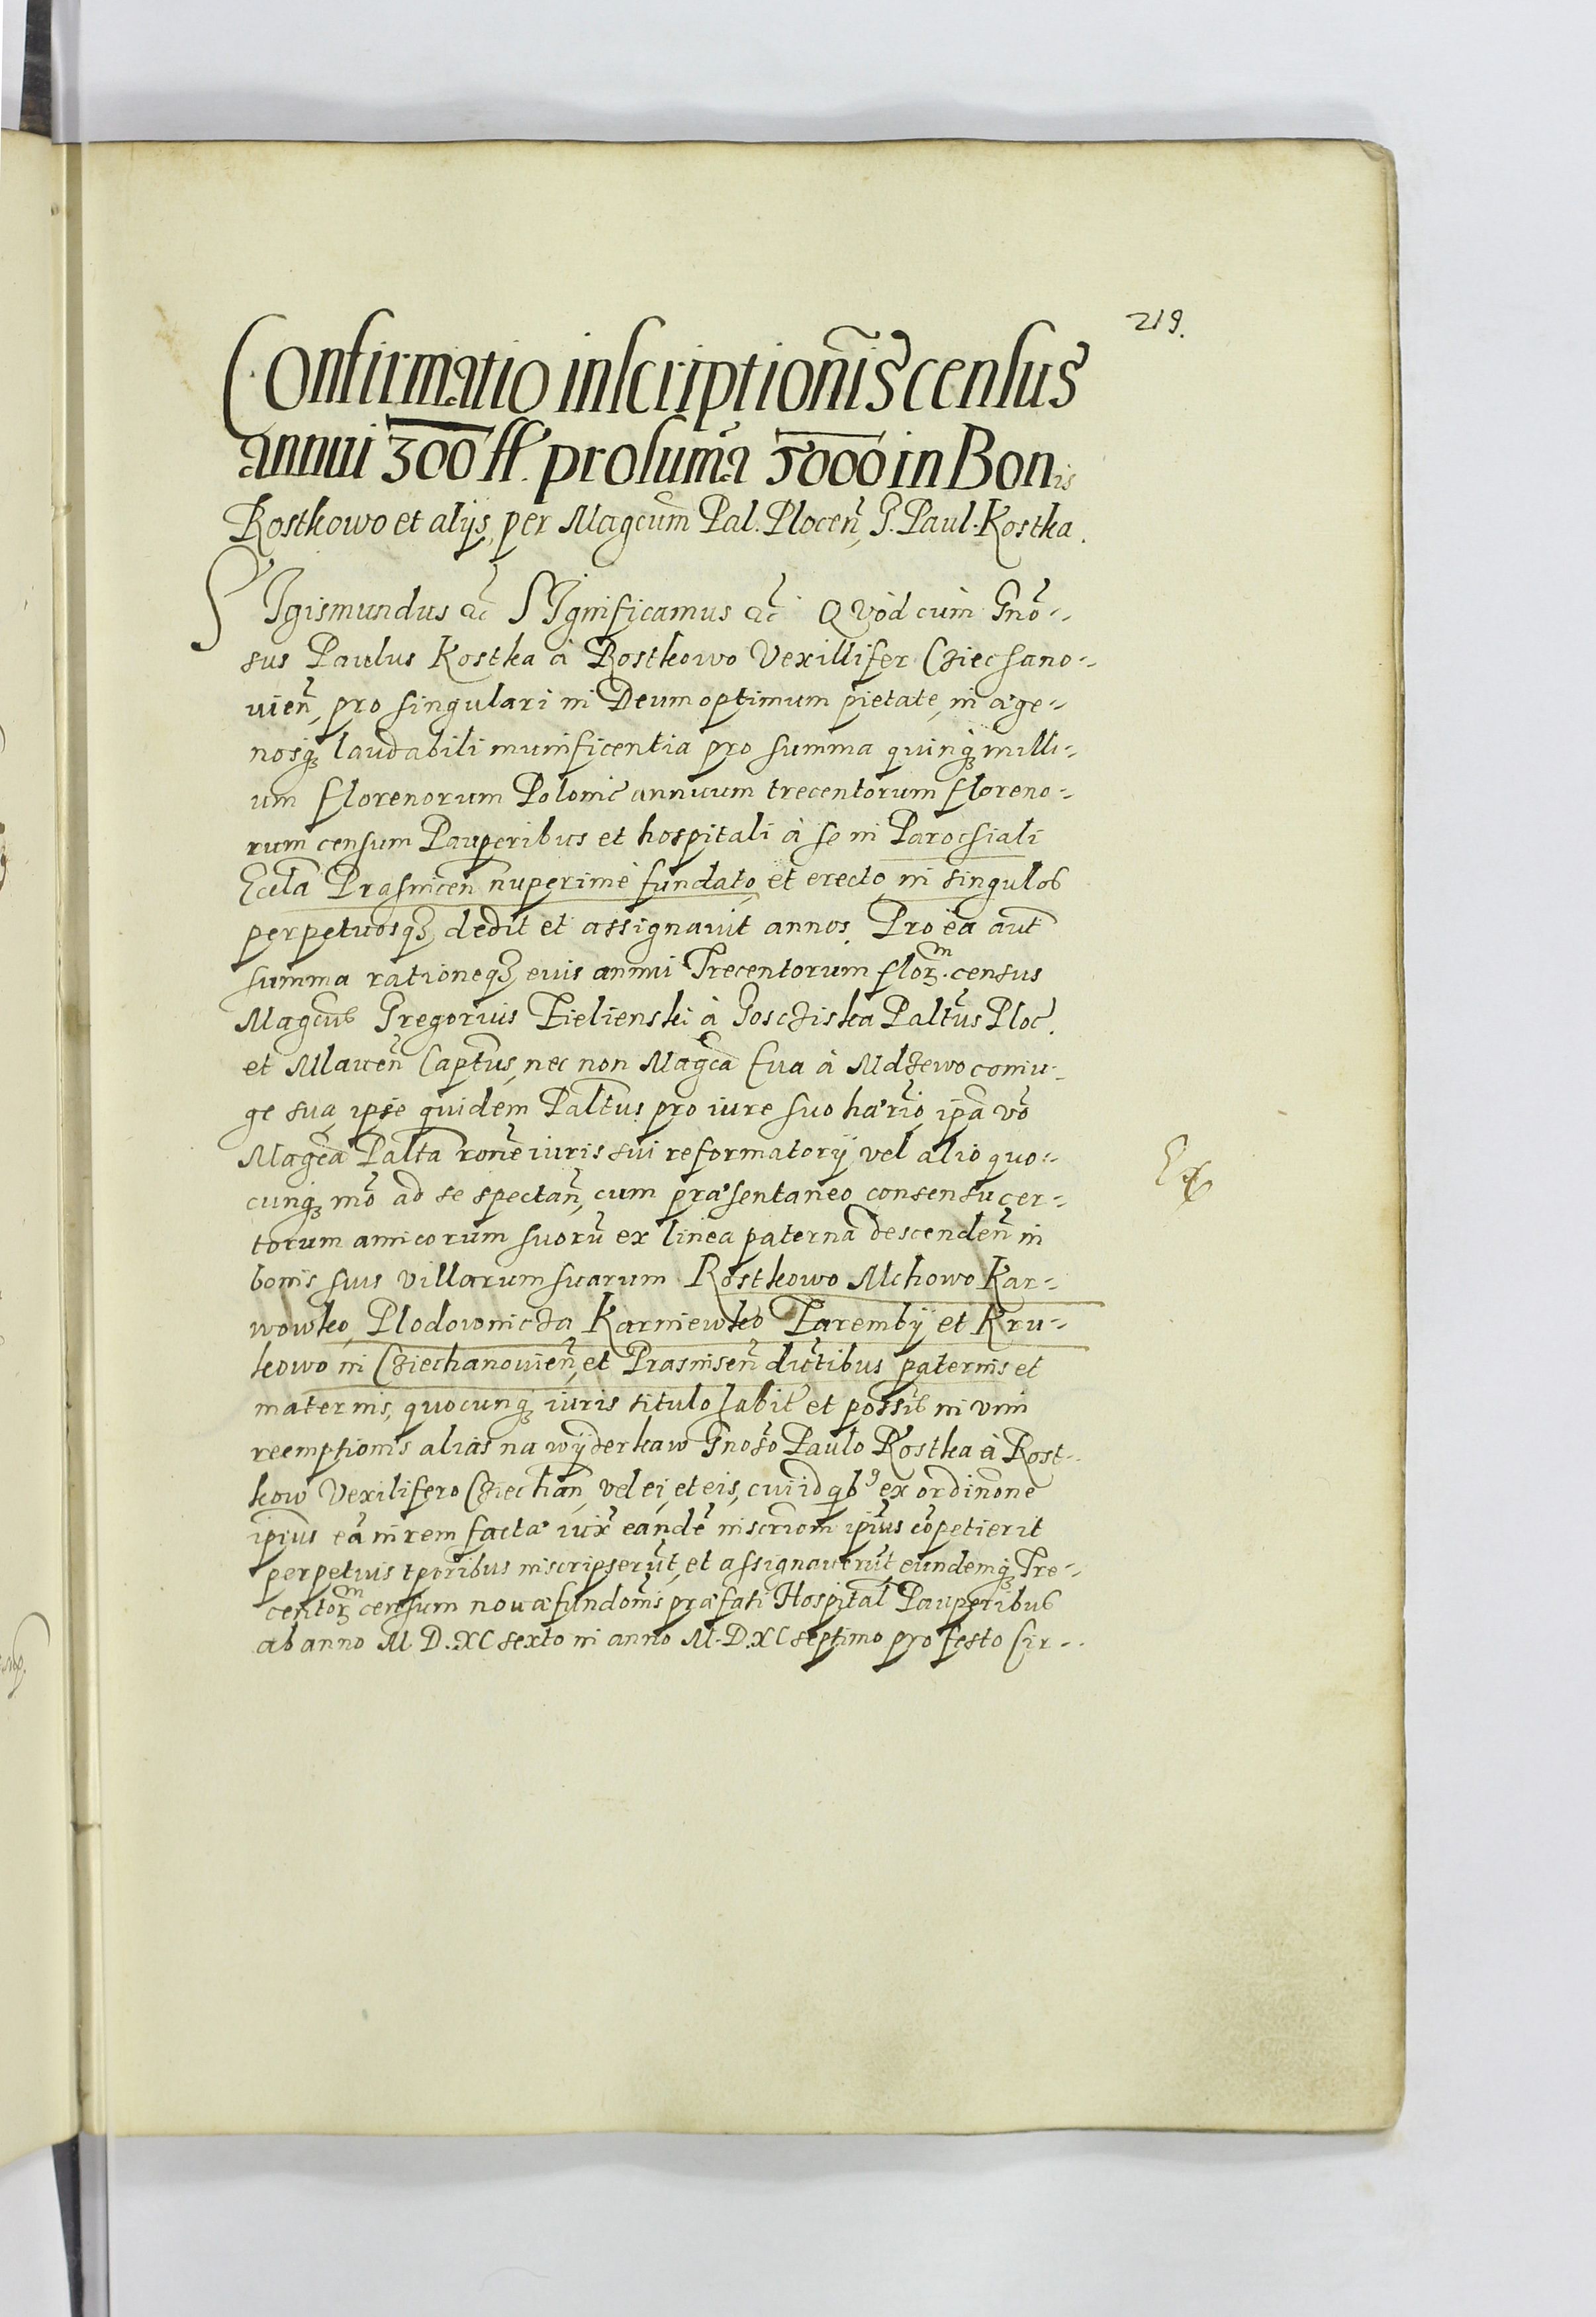 219.
Confirmatio inscriptionis census
annui 300 ff. pro sum̃a 5000 in Bonis
Rostkowo et alijs, per Magcum Pal. Plocen̄, G. Paul. Kostka.
SIgismundus ac̃ SIgnificamus ac̃ Quòd cum Gnõ-
sus Paulus Kostka à Rostkowo Vexillifer Cziechano-
uien̄, pro singulari in Deum optimum pietate, in aege-
nosq3 laudabili munificentia pro summa quinq3 milli-
um florenorum Polonic̃ annuum trecentorum floreno-
rum censum Pauperibus et hospitali à se in Parochiali
Eccla Prasnicen nuperimè fundato, et erecto, in singulos
perpetuosq3 dedit et assignauit annos. Pro ea aut̃
summa rationeq3 euis annui Trecentorum florm. census
Magcus Gregorius Zielienski à Goscziska Paltus Ploc̃.
et Mlauen̄ Captus, nec non Magca Eua à Mdzewo coniu-
ge sua, ipse quidem Paltus pro iure suo hærio, ipa vo
Magca Palta rone iuris sui reformatorij vel alio quo-
cunq3 mo ad se spectan̄, cum præsentaneo consensu cer-
torum amicorum suorũ ex linea paterna descenden̄ in
bonis suis villarum suarum Rostkowo Mchowo Kar-
wowko, Plodownicza Karniewko Zarembÿ et Kru-
kowo in Cziechanouien̄, et Prasnisen̄ dictibus paternis et
maternis, quocunq3 iuris titulo habit̃ et possis in vim
reemptionis alias na wÿderkaw Gnoso Paulo Kostka à Rost-
kow Vexilifero Cziechan, vel ei, et eis, cui id qb9 ex ordinone
ipius eã in rem facta iux̃ eandẽ inscriom ipius cõpetierit
perpetuis tporibus inscripserũt, et assignauerũt, eundemq3 Tre-
centorm censum nouæ fundonis præfati Hospital Pauperibus
ab anno M. D. XC sexto in anno M. D. XC septimo pro festo Cir-
Ex